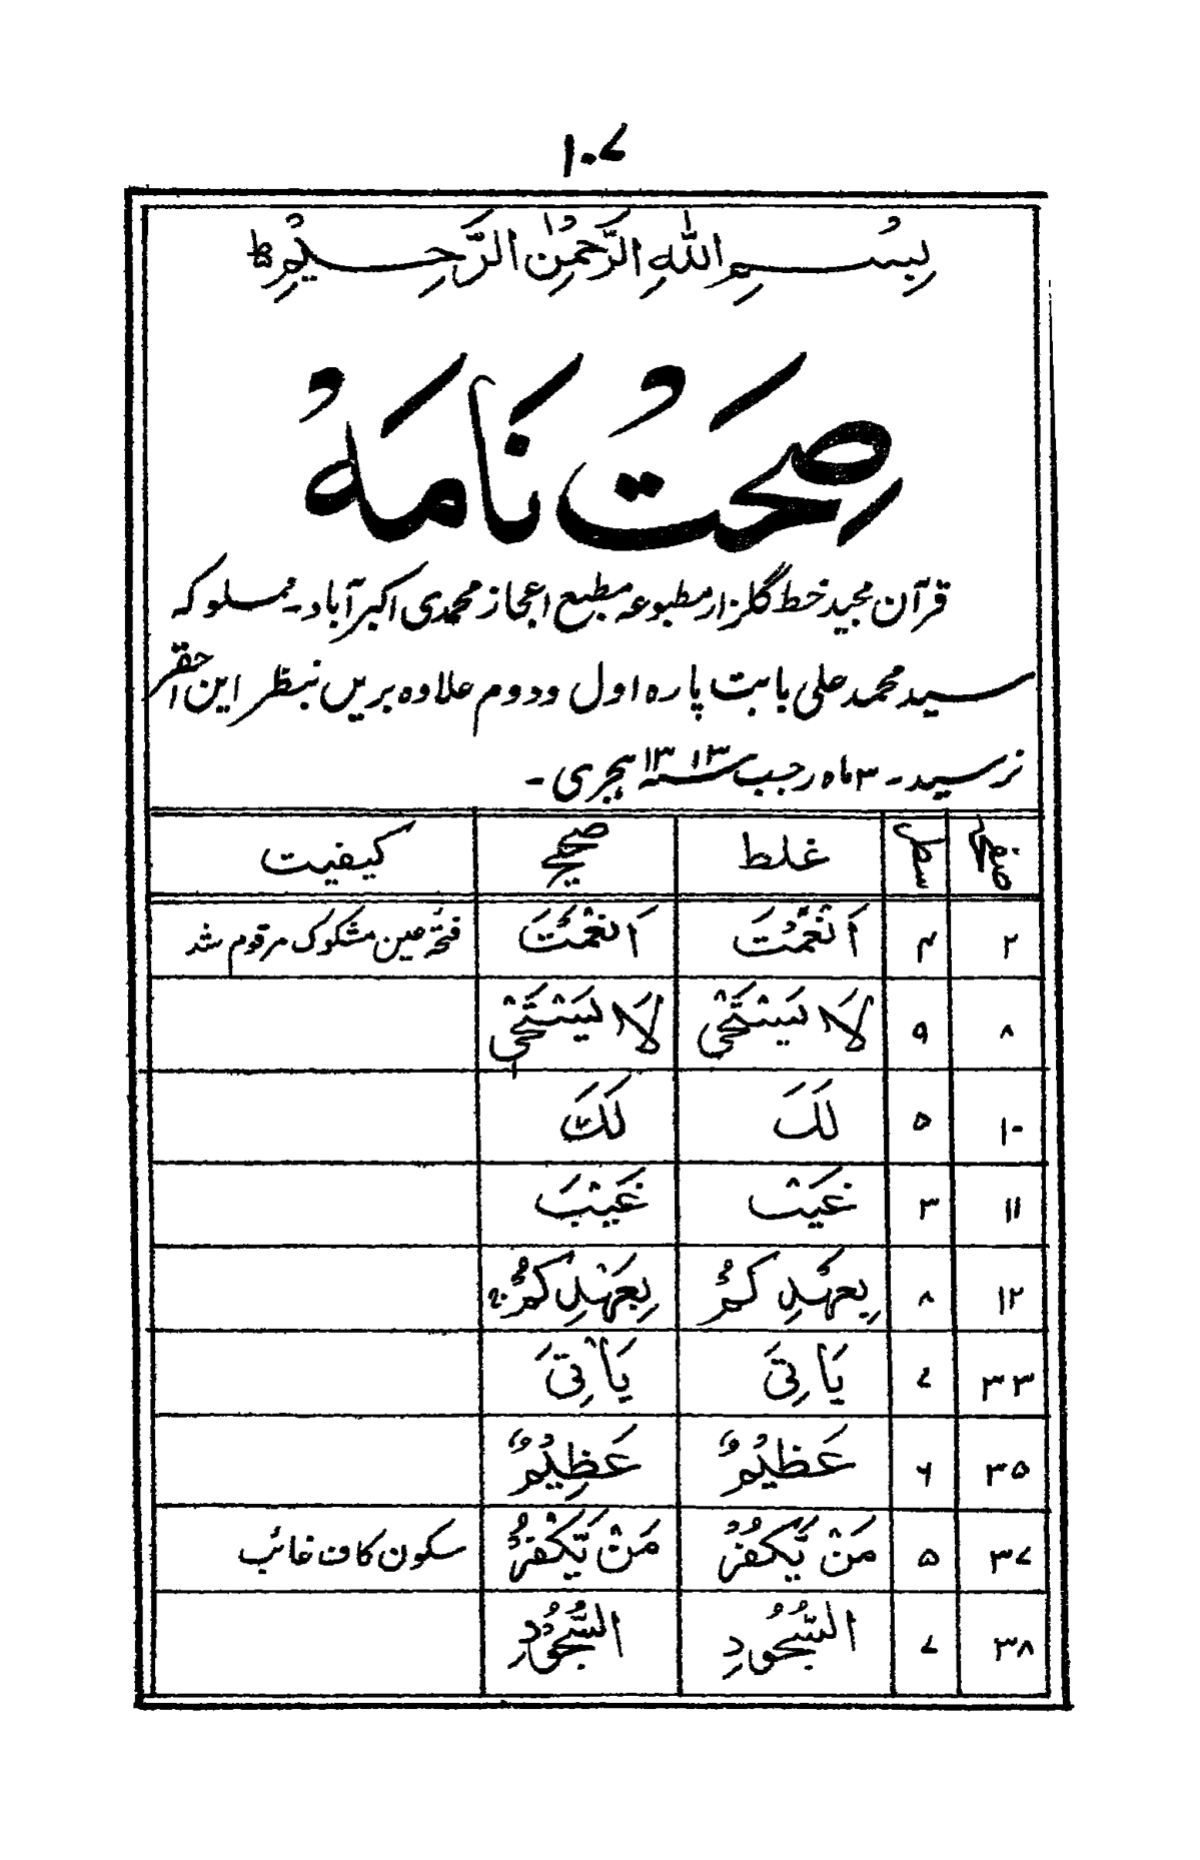 ۱۰۷
بِسْمِ اللّٰهِ الرَّحْمٰنِ الرَّحِيْمِ ط
صِحَتْ نَامَهْ
قرآن مجید خط گلزار مطبوعہ مطبع اعجاز محمدی اکبر آباد۔ مملوکہ
سید محمد علی بابت پارہ اول ودوم علاوہ بریں بنظر این احقر
نرسید۔ ۳ ماہ رجب سنہ ۱۳۱۳ ہجری۔
صفحہ سطر غلط صحیح کیفیت
۲ ۴ اَنْعَمْتَ اَنْعَمْتَ فتحہ عین مشکوک مرقوم شد
۸ ۹ لَا يَسْتَحْيٖ لَا يَسْتَحْيٖ
۱۰ ۵ لَكَ لَكَ
۱۱ ۳ غَيْبَ غَيْبَ
۱۲ ۸ بِعَهْدِكُمْ بِعَهْدِكُمْ
۳۳ ۷ يَاْتِيَ يَاْتِيَ
۳۵ ۶ عَظِيْمٌ عَظِيْمٌ
۳۷ ۵ مَنْ يَّكْفُرْ مَنْ يَّكْفُرْ سکون کاف غائب
۳۸ ۷ السُّجُوْدِ السُّجُوْدِ